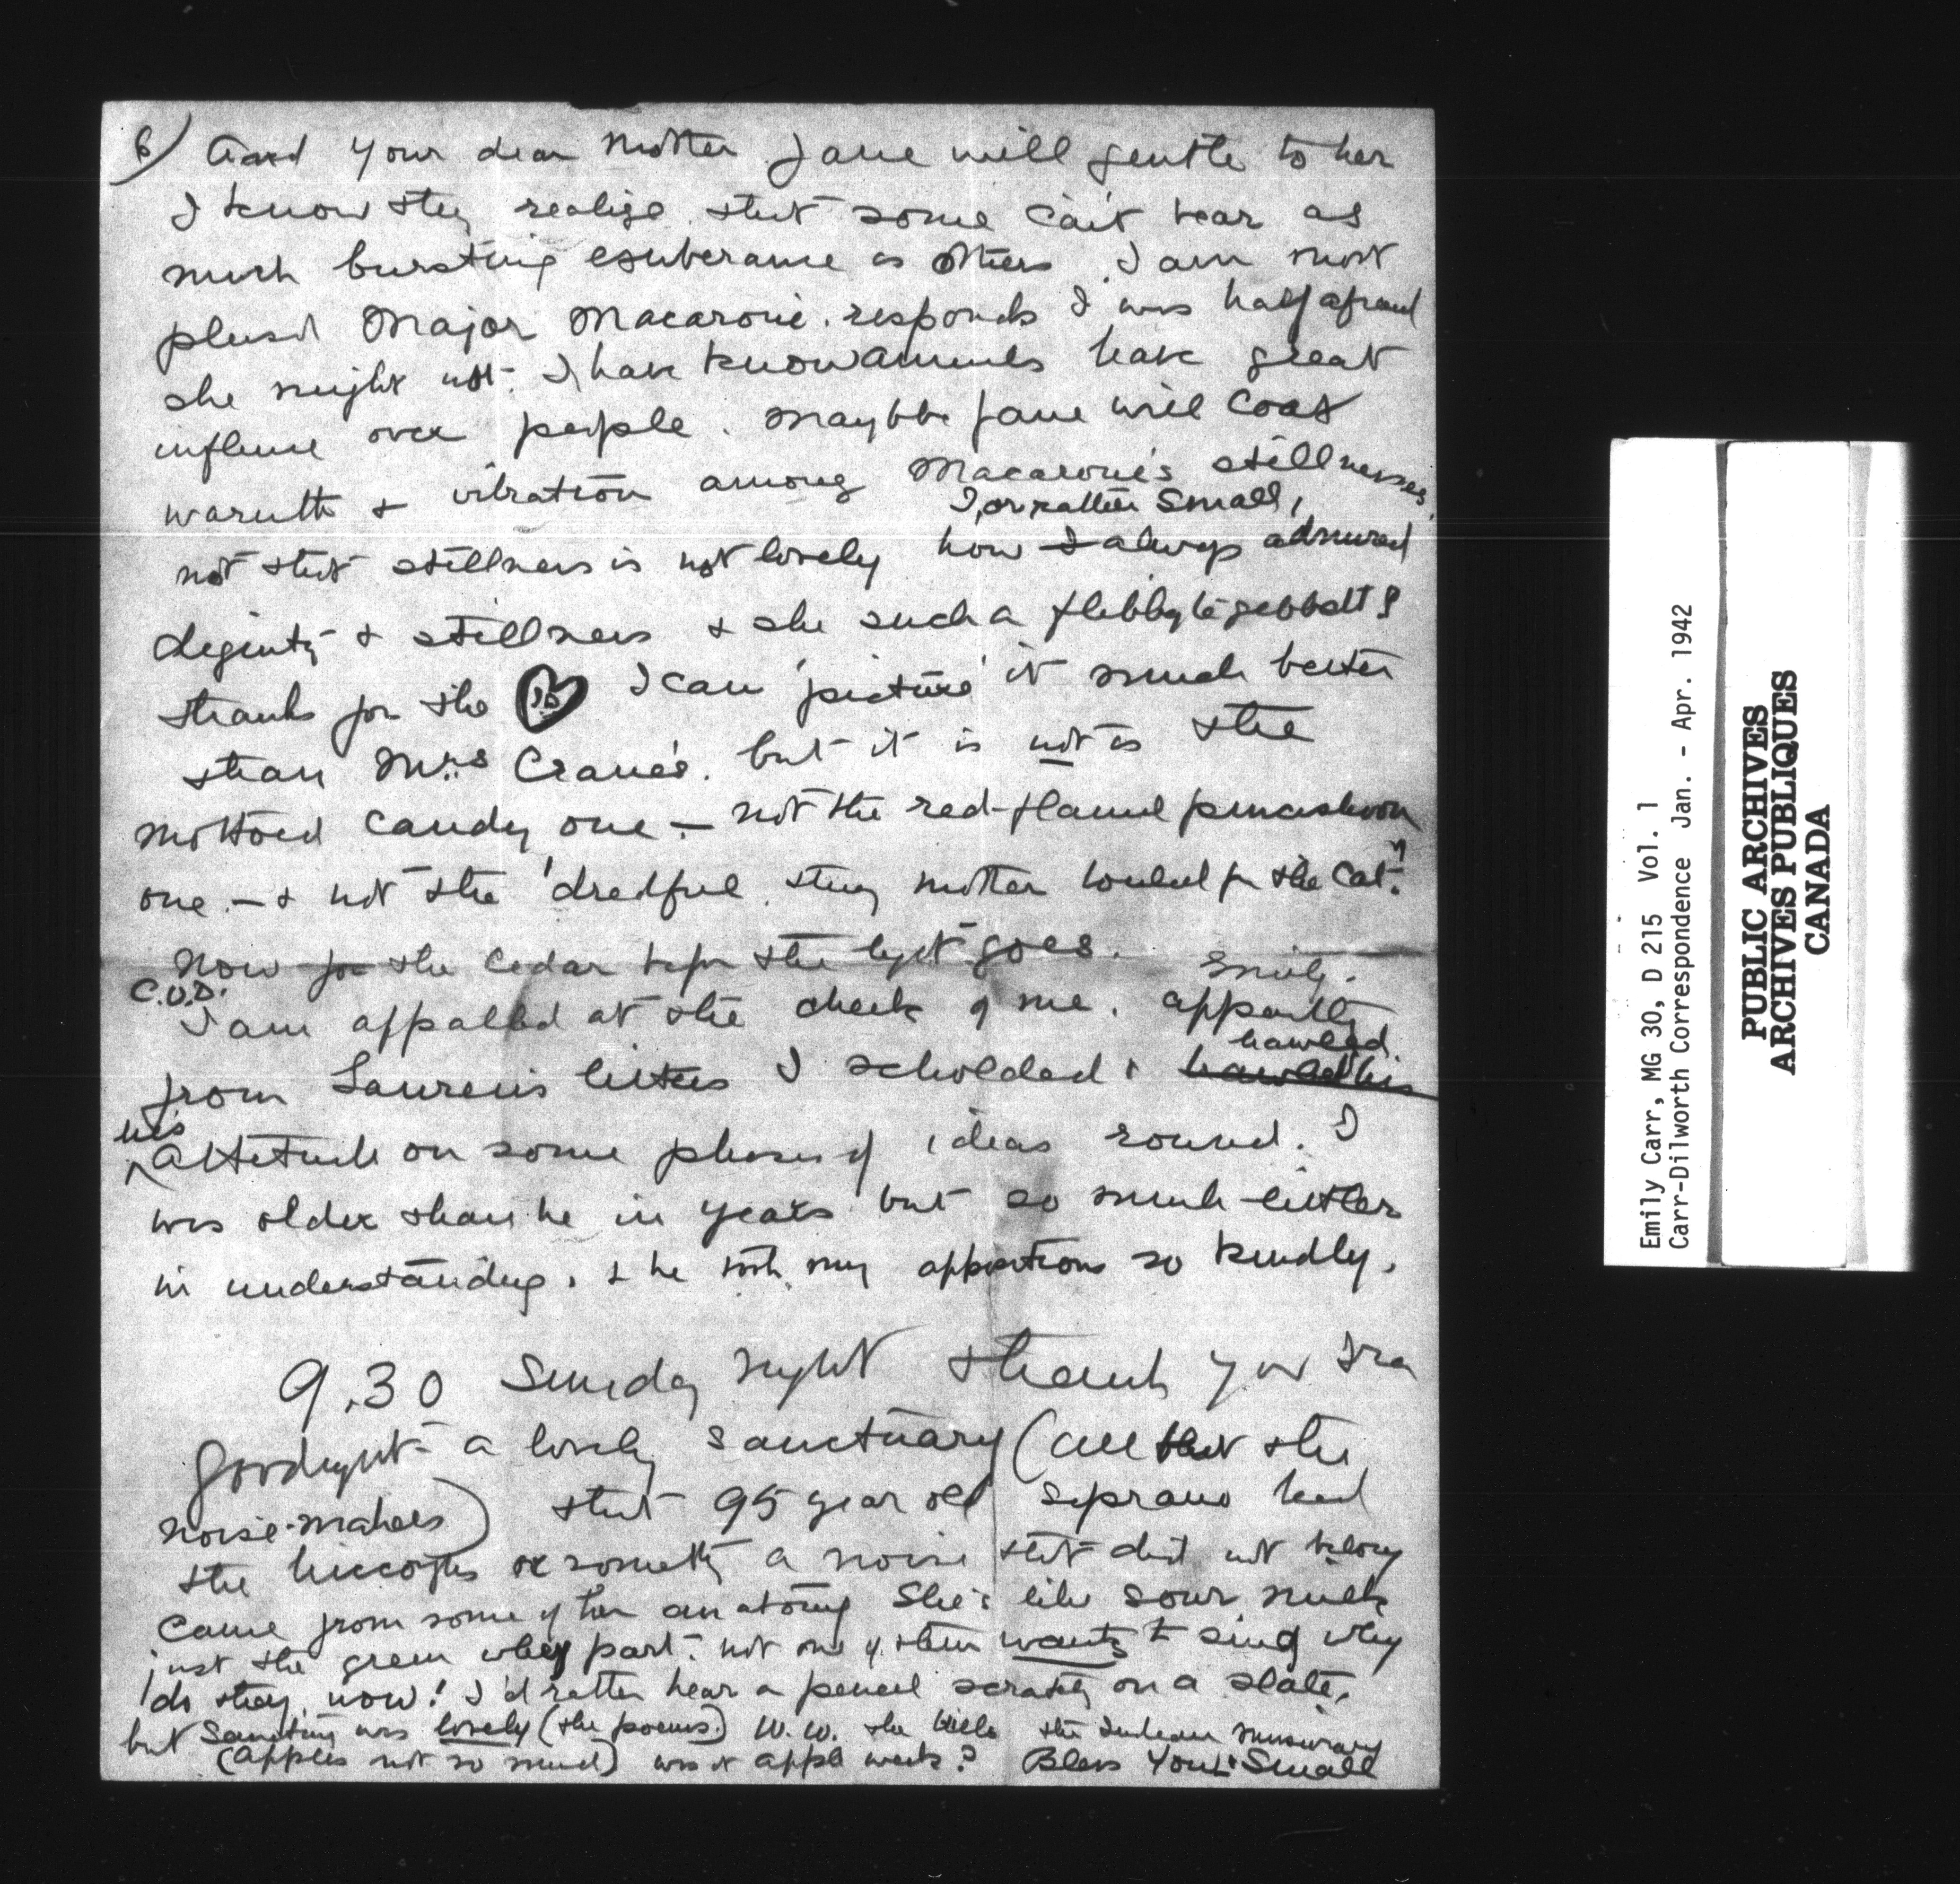 6) And your dear Mother Jane will gentle to her
I know they realize that some can't bear as
much bursting exuberance as others. I am most
pleased Major Macaroni responds I was half afraid
she might not. I have know animals have great
influence over people. Maybbe Jane will coax
warmth & vibration among Macaroni's stillnesses,
I, or rather Small,
not that stillness is not lovely how I always admired
diginty & stillness & she such a flibbytegibbett!
thanks for the I can 'picture' it much better
than Mrs Crane's. but it is not as the
mottoed Candy one — not the red-flannel pincushion
one — & not the 'dredful thing mother boiled for the cat."
Now for the Cedar befor the light goes. Emily.
C.O.D.
I am appalled at the cheek of me. appartly
from Lauren's letters I scholded & hawled his
hawled
his
attetude on some phases of ideas round. I
was older than he in years but so much littler
in understanding. & he took my oppsitions so kindly.
9.30 Sunday night thank you Ira
Goodnight a lovely sanctuary (all but the
noise-makers) that 95 year old soprano had
the hiccoughs or someth a noise that did not belong
came from some of her anatomy She's like sour milk
just the green whey part. not one of them wants to sing why
do they, now! I'd rather hear a pencil scratch on a slate,
but Sanctuary was lovely (the poems) W.W. the hills the Indian
(apples not so much) was it appl week? Bless You! Small
Emily Carr, MG 30, D 215 Vol. 1
Carr-Dilworth Correspondence Jan. - Apr. 1942
PUBLIC ARCHIVES
ARCHIVES PUBLIQUES
CANADA